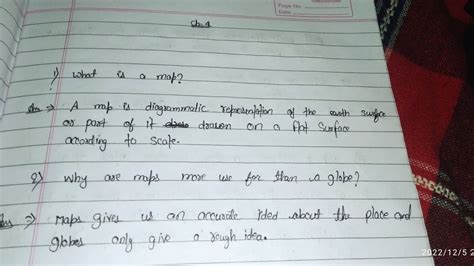 Page No.
Date
Ch-1
1) What is a map?
Ans → A map is diagrammatic representation of the earth surface
or part of it drawn on a flat surface
according to scale.
2) Why are maps more use for than a globe?
Ans → Maps gives us an accurate idea about the place and
globes only give a rough idea.
2022/12/5 2